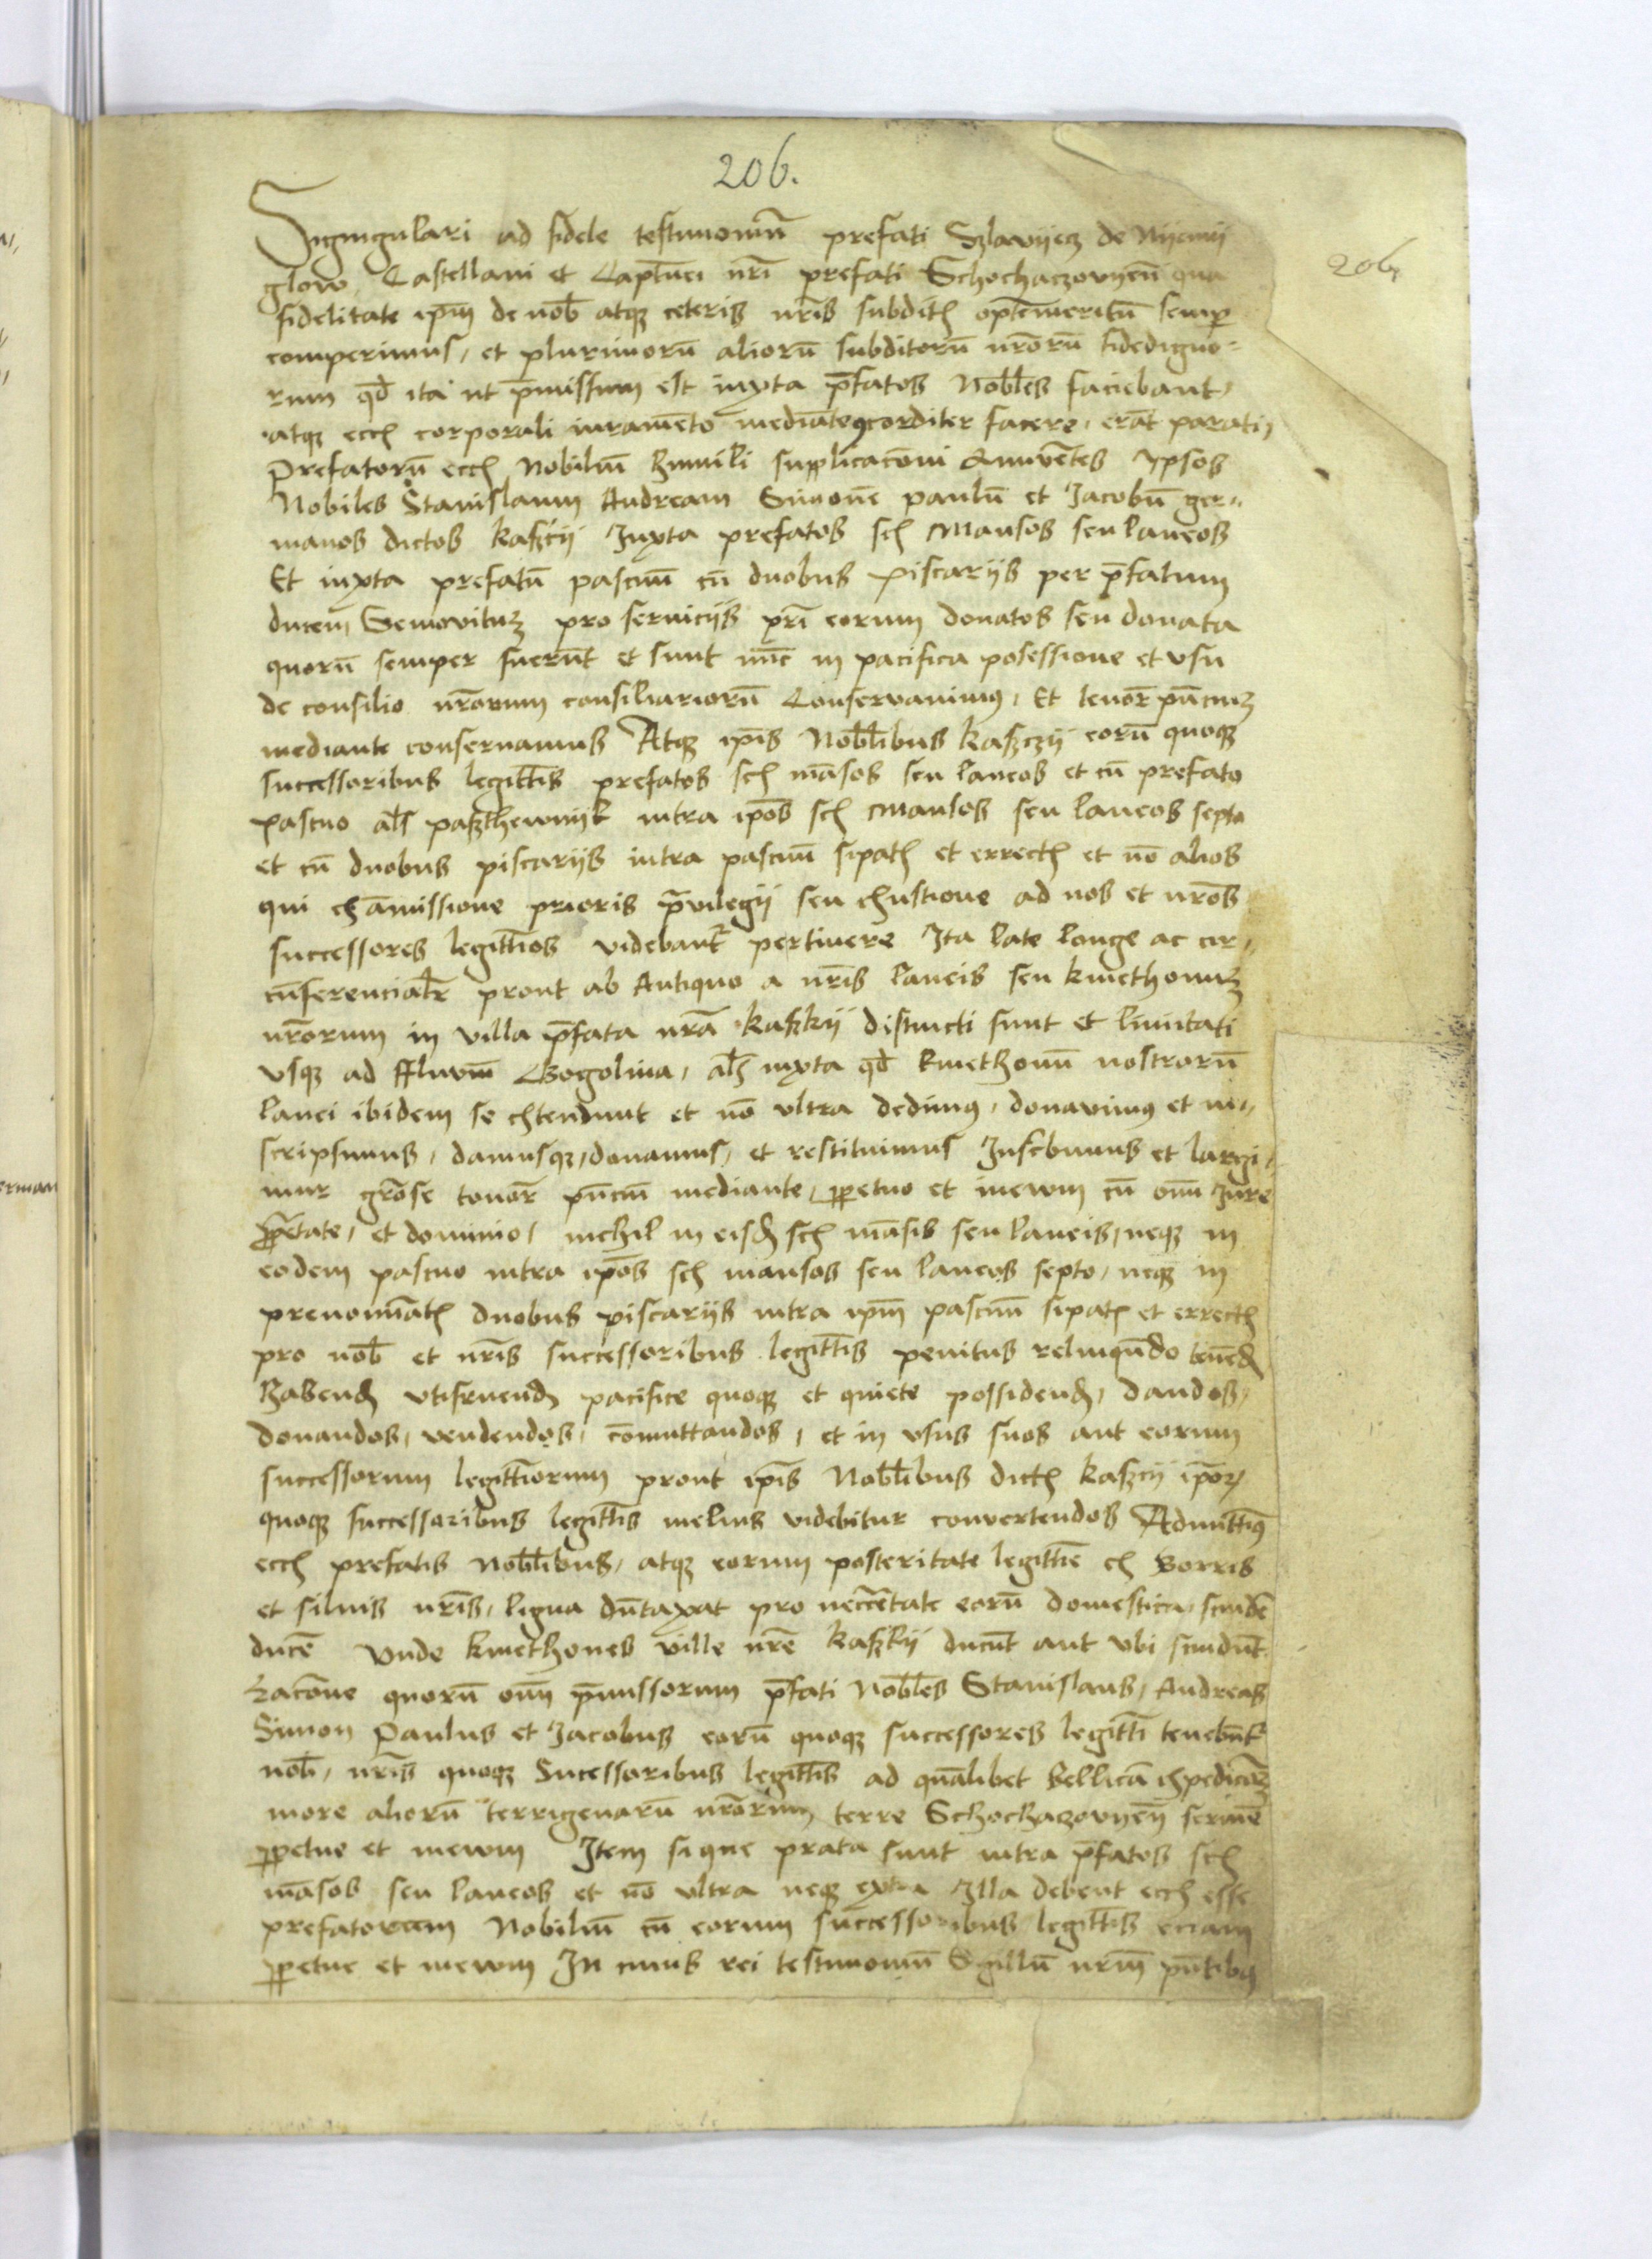 206.
206
Singingulari ad fidele testimoniū prefati Szlavijecz de Nijemij
glow, Castellani et Capt̄nei nr̄i prefati Schochaczovijen̄ qua
fidelitate ip̄m de nob̄ atqꝫ ceteris nr̄is subdit̄ optēmeritū semꝑ
comperimus, et plurimorū aliorū subditorū nr̄orū fidedigno=
rum qd̄ ita ut p̄missum est iuxta p̄fatos Nobl̄es faciebant,
atqꝫ ecc̄ corporali iuramēto mediāte ꝯcorditer facere, erāt parati,
Prefatorū ecc̄ Nobiliū humili supplicacōni Annuētes Ipsos
Nobiles Stanislaum Andream Simonē paulū et Jacobū ger=
manos dictos Kaskij Juxta prefatos sex Mansos seu laneos
Et iuxta prefatū pascuū cū duobus piscarijs per p̄fatum
ducem Semovituꝫ pro servicijs pr̄i eorum donatos seu donata
quorū semper fuerūt et sunt nūc in pacifica posessione et vsu
de consilio nr̄orum consiliariorū Conservavimꝰ, Et tenor̄ p̄nciuꝫ
mediante conservamus Atqꝫ ip̄is Nobl̄ibus Kasczij eorū quoqꝫ
successoribus legitt̄is prefatos sex māsos seu laneos et cū prefato
pascuo al̄s pasthewnijk intra ip̄os sex Mansos seu laneos septo
et cū duobus piscarijs intra pascuū sipat̄ et errect̄ et nō alios
qui ex āmissione prioris p̄vilegij seu ex̄ustione ad nos et nr̄os
successores legitt̄ios videbant̄ pertinere Ita late longe ac cir=
cūferencialr̄ prout ab Antiquo a nr̄is laneis seu kmethonuꝫ
nr̄orum in villa p̄fata nr̄a Kaskij distincti sunt et limitati
vsqꝫ ad ffluviū Bogolina, al̄s iuxta qd̄ kmethonū nostrorū
lanei ibidem se extendunt et nō vltra dedimꝰ, donavimꝰ et in=
scripsimus, damusqꝫ, donamus, et restituimus Inscbimus et largi=
mur gr̄ose tenor̄ p̄nciū mediante, ꝑpetuo et inewm cū om̄i Jure
ꝓpr̄etate, et dominio, nichil in eisd̄ sex māsis seu laneis, neqꝫ in
eodem pascuo intra ip̄os sex mansos seu laneos septo, neqꝫ in
prenomīat̄ duobus piscarijs intra ip̄m pascuū sipat̄ et errect̄
pro nob̄ et nr̄is successoribus legitt̄is penitus relinquēdo tenēd̄
habend̄ vtifruend̄ pacifice quoqꝫ et quiete possidend̄, dandos,
donandos, vendendos, cōmittandos, et in vsus suos aut eorum
successorum legitt̄iorum prout ip̄is Nobl̄ibus dict̄ Kaskij ip̄oꝝ
quoqꝫ successoribus legitt̄is melius videbitur convertendos Admittimꝰ
ecc̄ prefatis Nobl̄ibus, atqꝫ eorum posteritate legitt̄ie ex Borris
et silvis nr̄is, ligna dūtaxat pro necc̄etate eorū domestica, scindē
ducē Vnde kmethones ville nr̄e Kaskij ducūt aut vbi scindūt
racōne quorū om̄i p̄missorum p̄fati Nobl̄es Stanislaus, Andreas
Simon Paulus et Jacobus eorū quoqꝫ successores legitt̄i tenebūt̄
nob̄, nr̄is quoqꝫ Sucessoribus legitt̄is ad quālibet bellicā expedicōꝫ
more aliorū terrigenarū nr̄orum terre Schochaczovijen̄ servire
ꝑpetue et inewm Item si que prata sunt intra p̄fatos sex
māsos seu laneos et nō vltra neqꝫ extra Illa debent ecc̄ esse
prefatorum Nobiliū cū eorum successoribus legitt̄is eciam
ꝑpetue et inewm In cuius rei testimoniū Sigillū nr̄m p̄ntibꝰ
erman